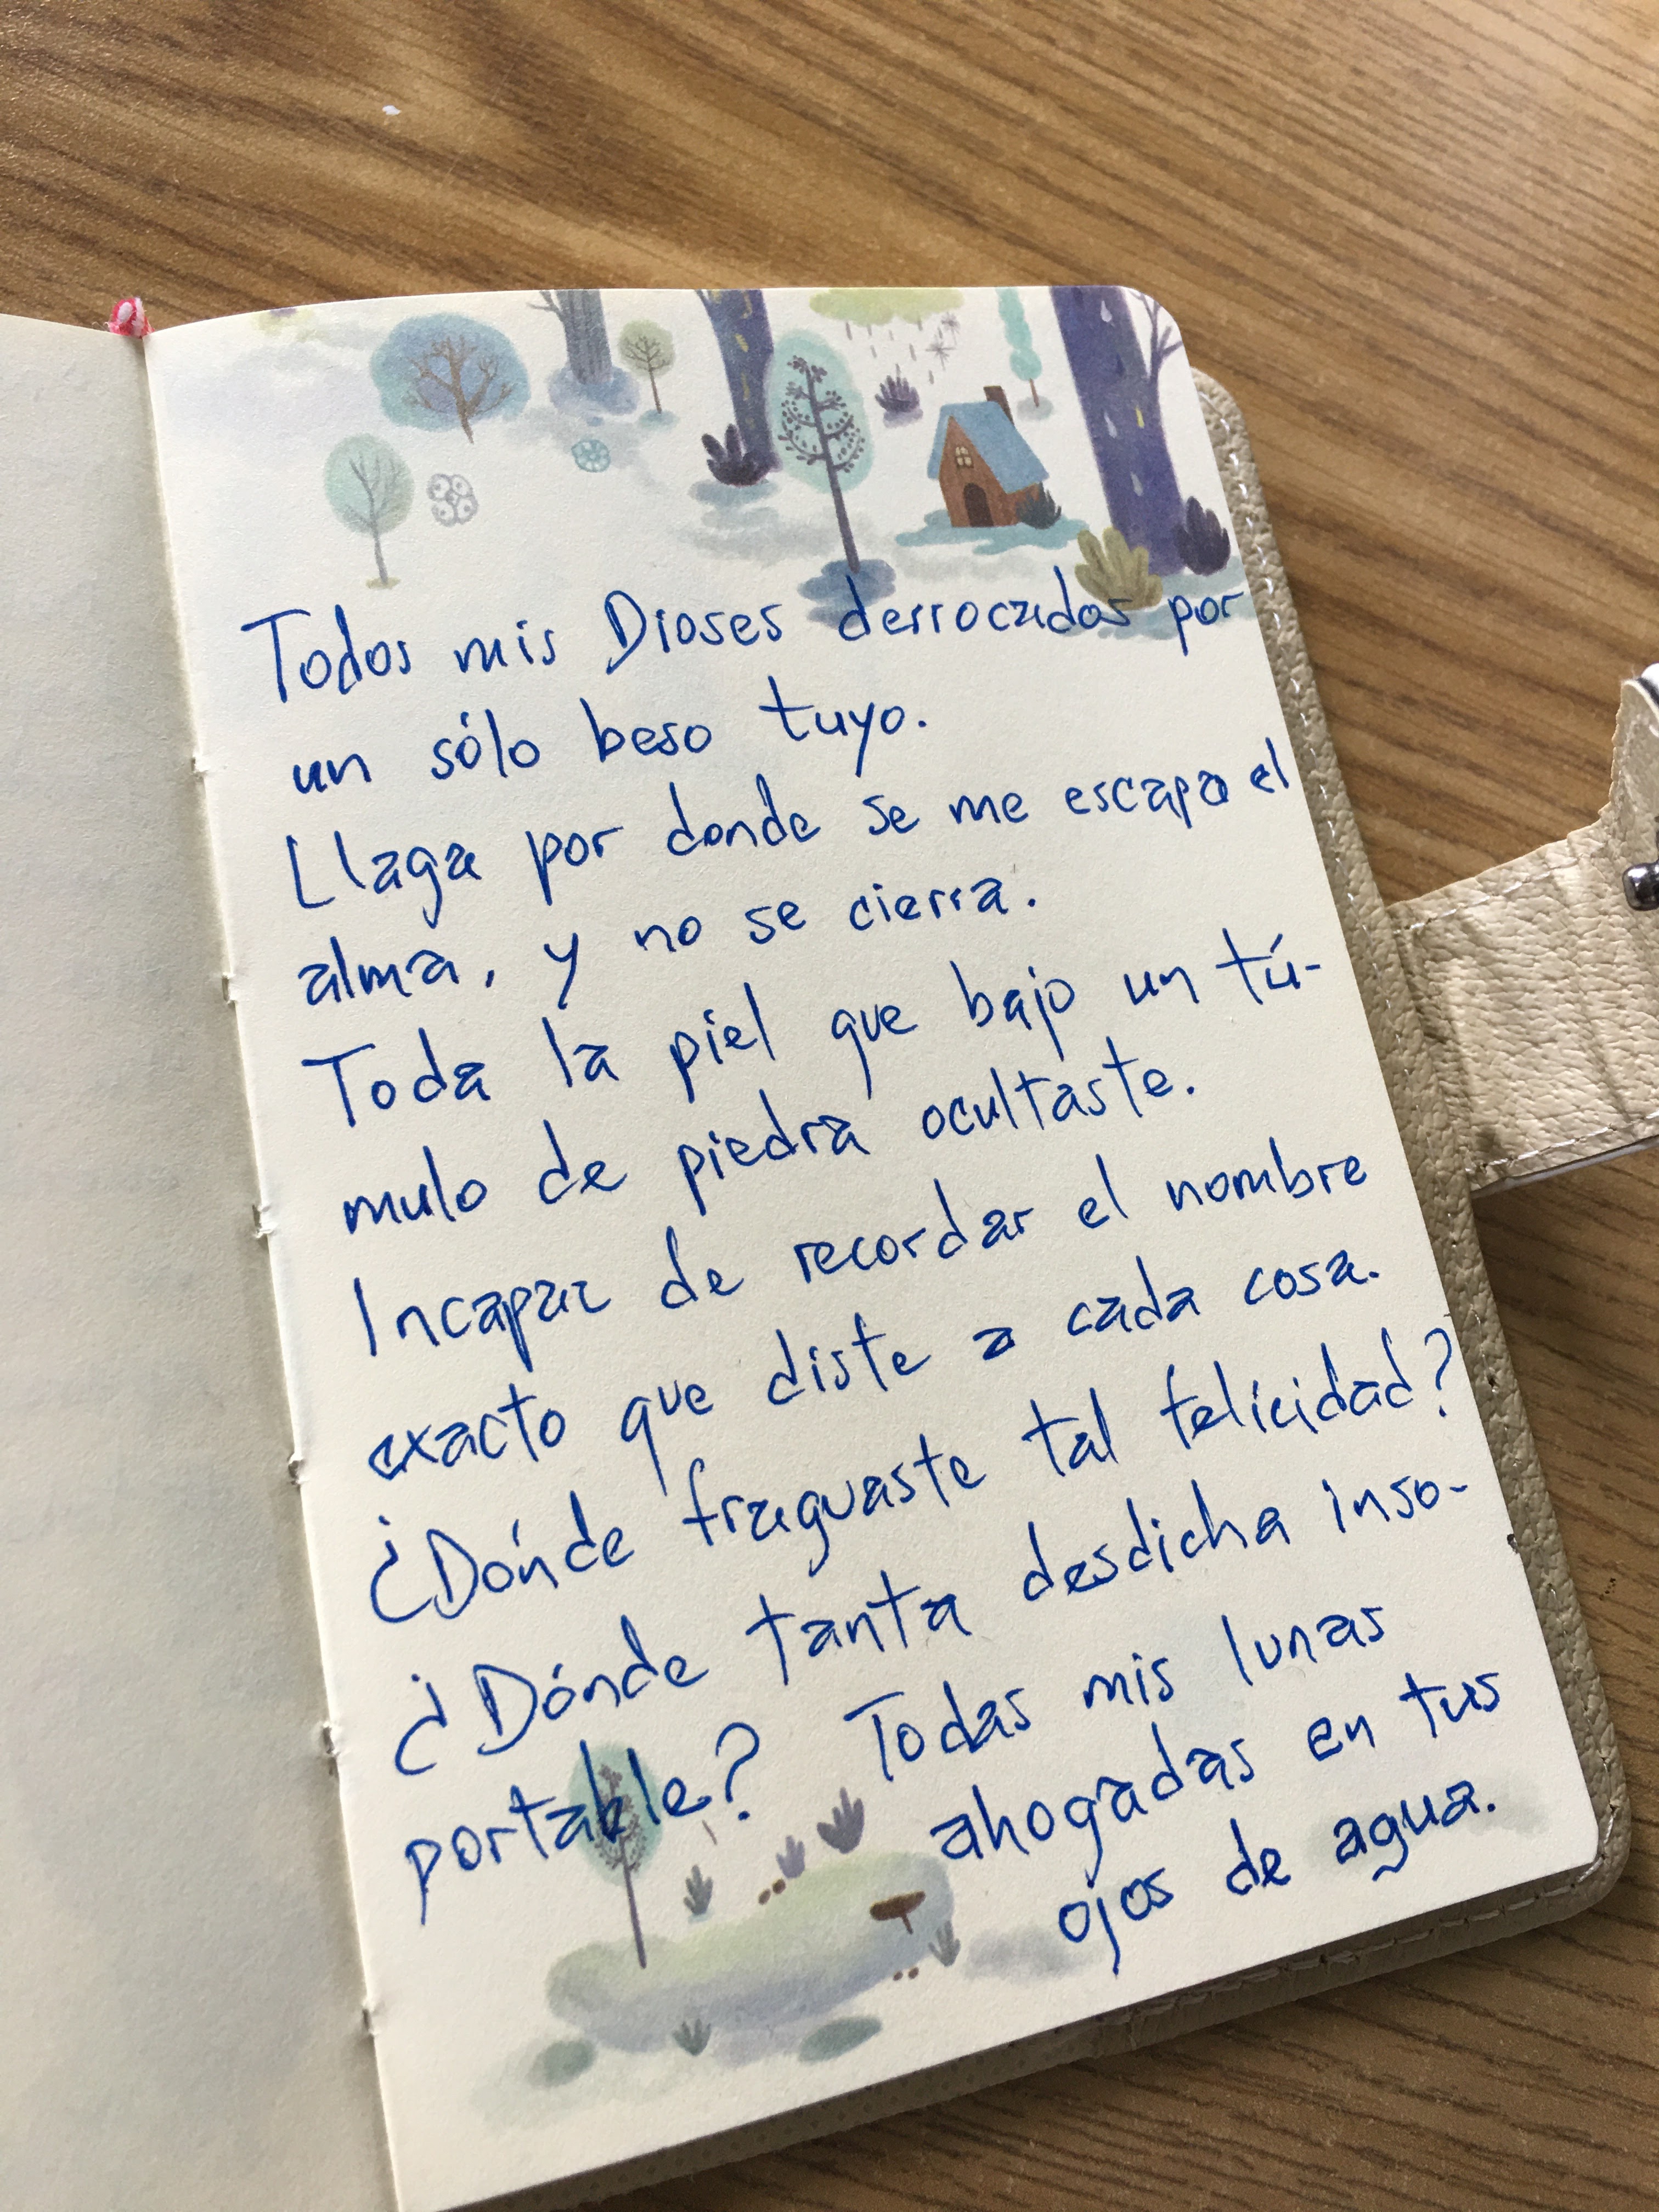 Todos mis Dioses derrocados por
un sólo beso tuyo.
Llaga por donde se me escapa el
alma, y no se cierra.
Toda la piel que bajo un tú-
mulo de piedra ocultaste.
Incapaz de recordar el nombre
exacto que diste a cada cosa.
¿Dónde fraguaste tal felicidad?
¿Dónde tanta desdicha inso-
portable? Todas mis lunas
ahogadas en tus
ojos de agua.